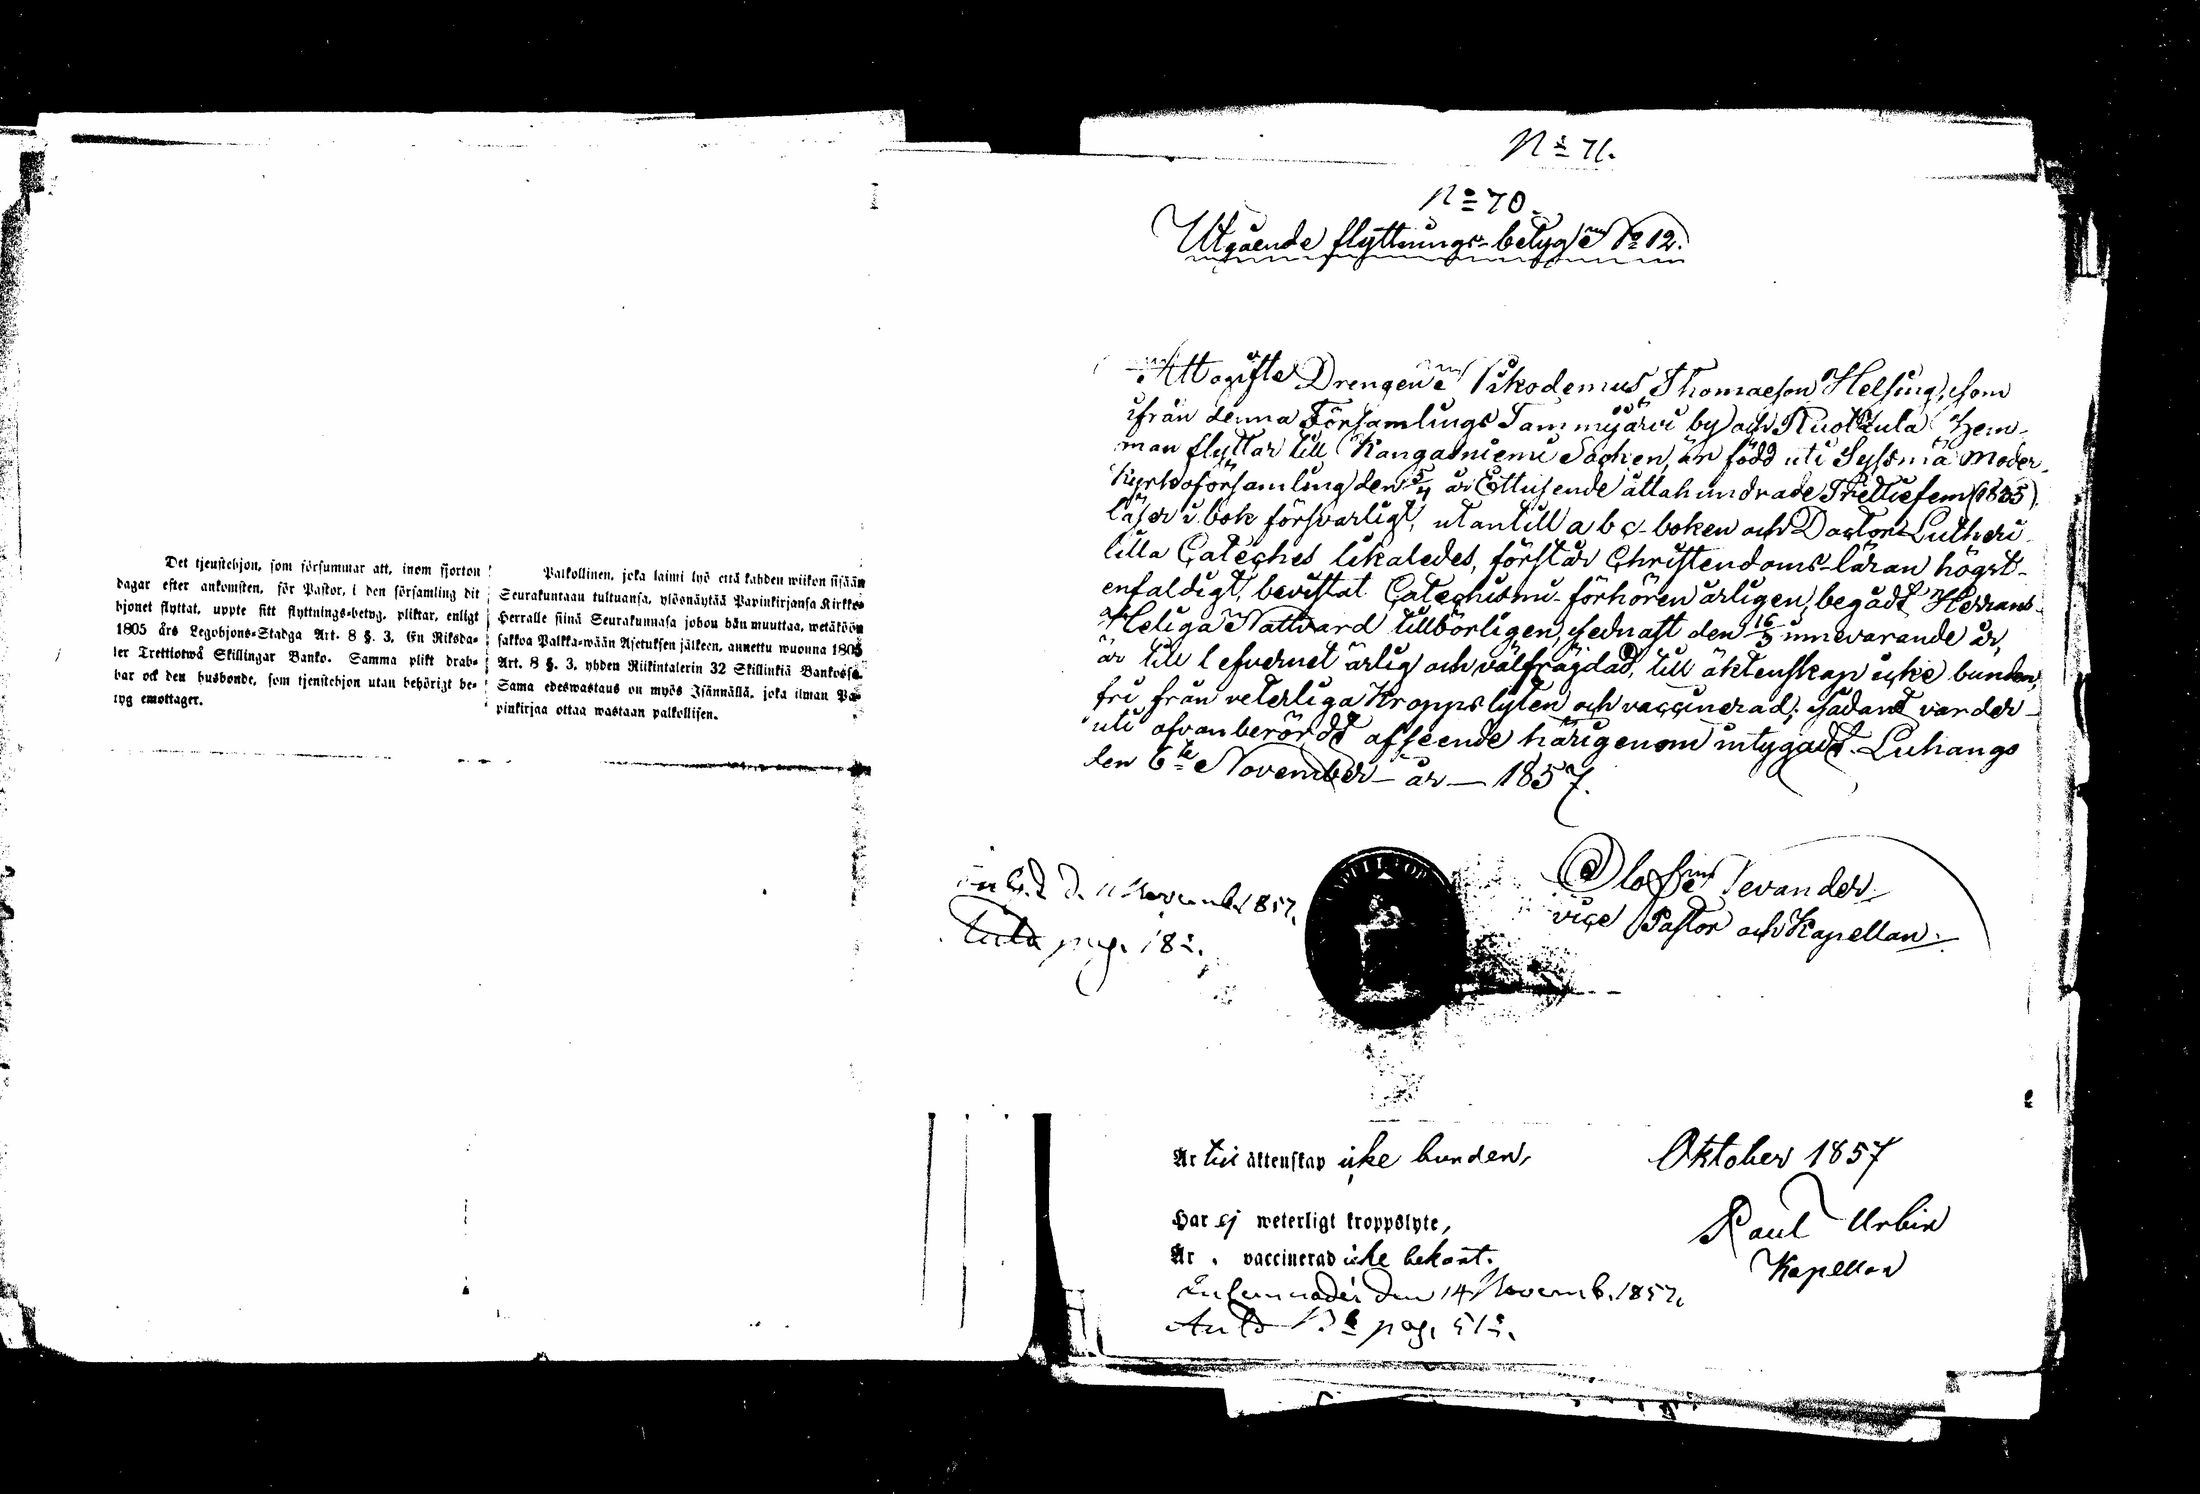 Det tjenstehjon, som försummar att, inom fjorton
dagar efter ankomsten, för Pastor, i den församling dit
hjonet flyttat, uppte sitt flyttnings-betyg, pliktar, enligt
1805 års Legohjons-Stadga Art. 8 §. 3, En Riksda-
ler Trettiotwå Skillingar Banko. Samma plikt drab-
bar ock den husbonde, som tjenstehjon utan behörigt be-
tyg emottager.
Palkollinen, joka laimi lyö että kahden wiikon sisään
Seurakuntaan tultuansa, ylösnäytää Papinkirjansa Kirkko-
Herralle siinä Seurakunnasa johon hän muuttaa, wetäköön
sakkoa Palkka-wään Asetuksen jälkeen, annettu wuonna 1805
Art. 8 §. 3, yhden Riikintalerin 32 Skillinkiä Bankossa.
Sama edeswastaus on myös Isännällä, joka ilman Pa-
pinkirjaa ottaa wastaan palkollisen.
No 71.
No 70.
Utgående flyttnings-betyg No 12.
Att ogifte Drengen Nikodemus Thomaeson Helsing, som
ifrån denna Församlings Tammijärvi by och Ruokkula Hem-
man flyttar till Kangasniemi Socken, är född uti Syssmä Moder-
kyrkoförsamling den 5/4 år Ettusende åttahundrade Trettiefem (1835),
läser i bok försvarligt, utantill a b c-boken och Doctor Lutheri
lilla Cateches likaledes, förstår Christendoms-läran högst-
enfaldigt, bevistat Catechismi-förhören årligen, begådt Herrans
Heliga Nattvard tillbörligen, sednast den 16/5 innevarande år,
är till lefvernet ärlig och välfrägdad, till äktenskap icke bunden,
fri från veterliga Kroppslyten och vaccinerad; sådant varder
uti ofvanberördt afseende härigenom intygadt. Luhango
den 6te November år 1857.
Olof Levander
vice Pastor och Kapellan.
d. 11 Novemb. 1857.
pag. 182.
Är till äktenskap icke bunden,
Har ej weterligt kroppslyte,
Är vaccinerad icke bekant.
Oktober 1857
Paul Urbin
Kapellan
den 14 Novemb. 1857.
pag. 512.